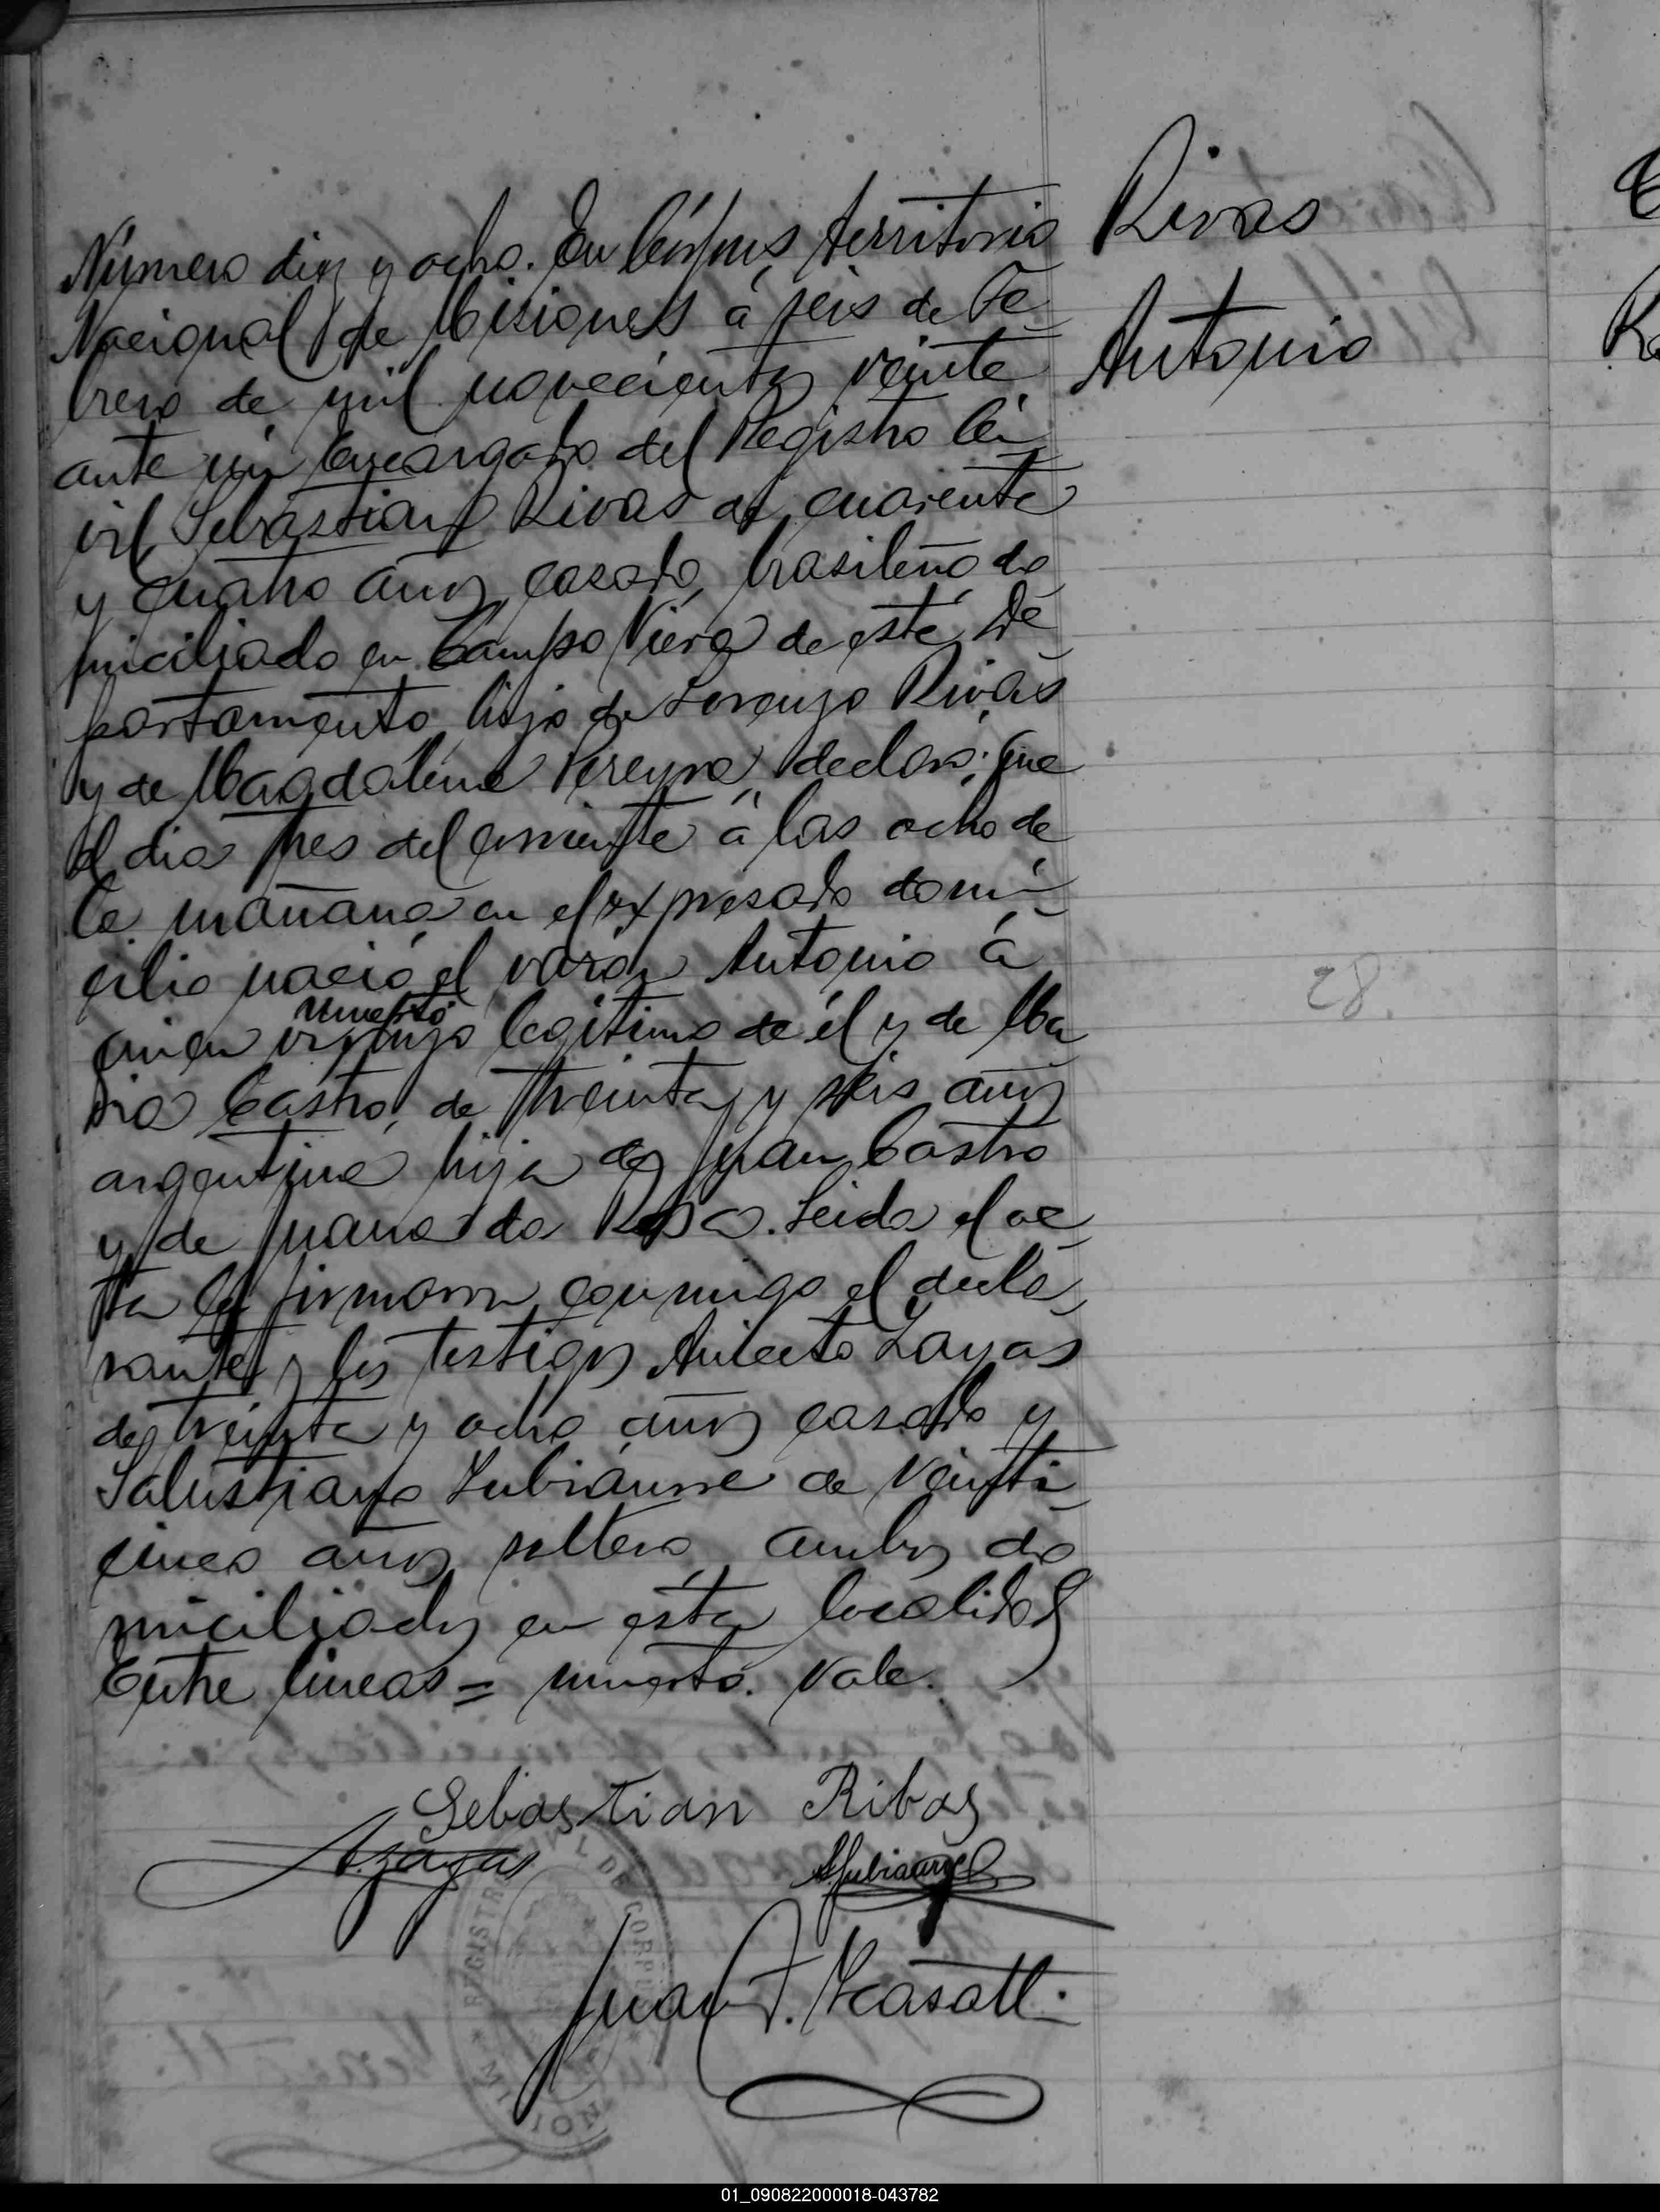 Rivas
Antonio
Número diez y ocho. En Corpus, territorio
Nacional de Misiones á seis de Fe-
brero de mil novecientos veinte
ante mí Encargado del Registro Ci-
vil, Sebastian Rivas de cuarenta
y cuatro años, casado, brasileño do
miciliado en Campo Viera de este De
partamento hijo de Lorenzo Rivas
y de Magdalena Pereyra, declaró: Que
el dia tres del corriente á las ocho de
la mañana en el expresado domi-
cilio nació el varón Antonio á
muerto
quien vi, hijo legítimo de él y de Ma
ria Castro, de treinta y seis años
argentina hija de Juan Castro
y de Juana da Rosa. Leida el ac-
ta la firmaron conmigo el decla-
rante y los testigos Aniceto Zayas
de treinta y ocho años casado y
Salustiano Yubiaurre de veinti-
cinco años soltero ambos do
miciliados en esta localidad
Entre lineas = muerto. Vale.
Sebastian Ribas
A. Zayas
SYubiaurre
Juan F.
REGISTRO CIVIL DE CORPUS
MISIONES
28.
01_090822000018-043782